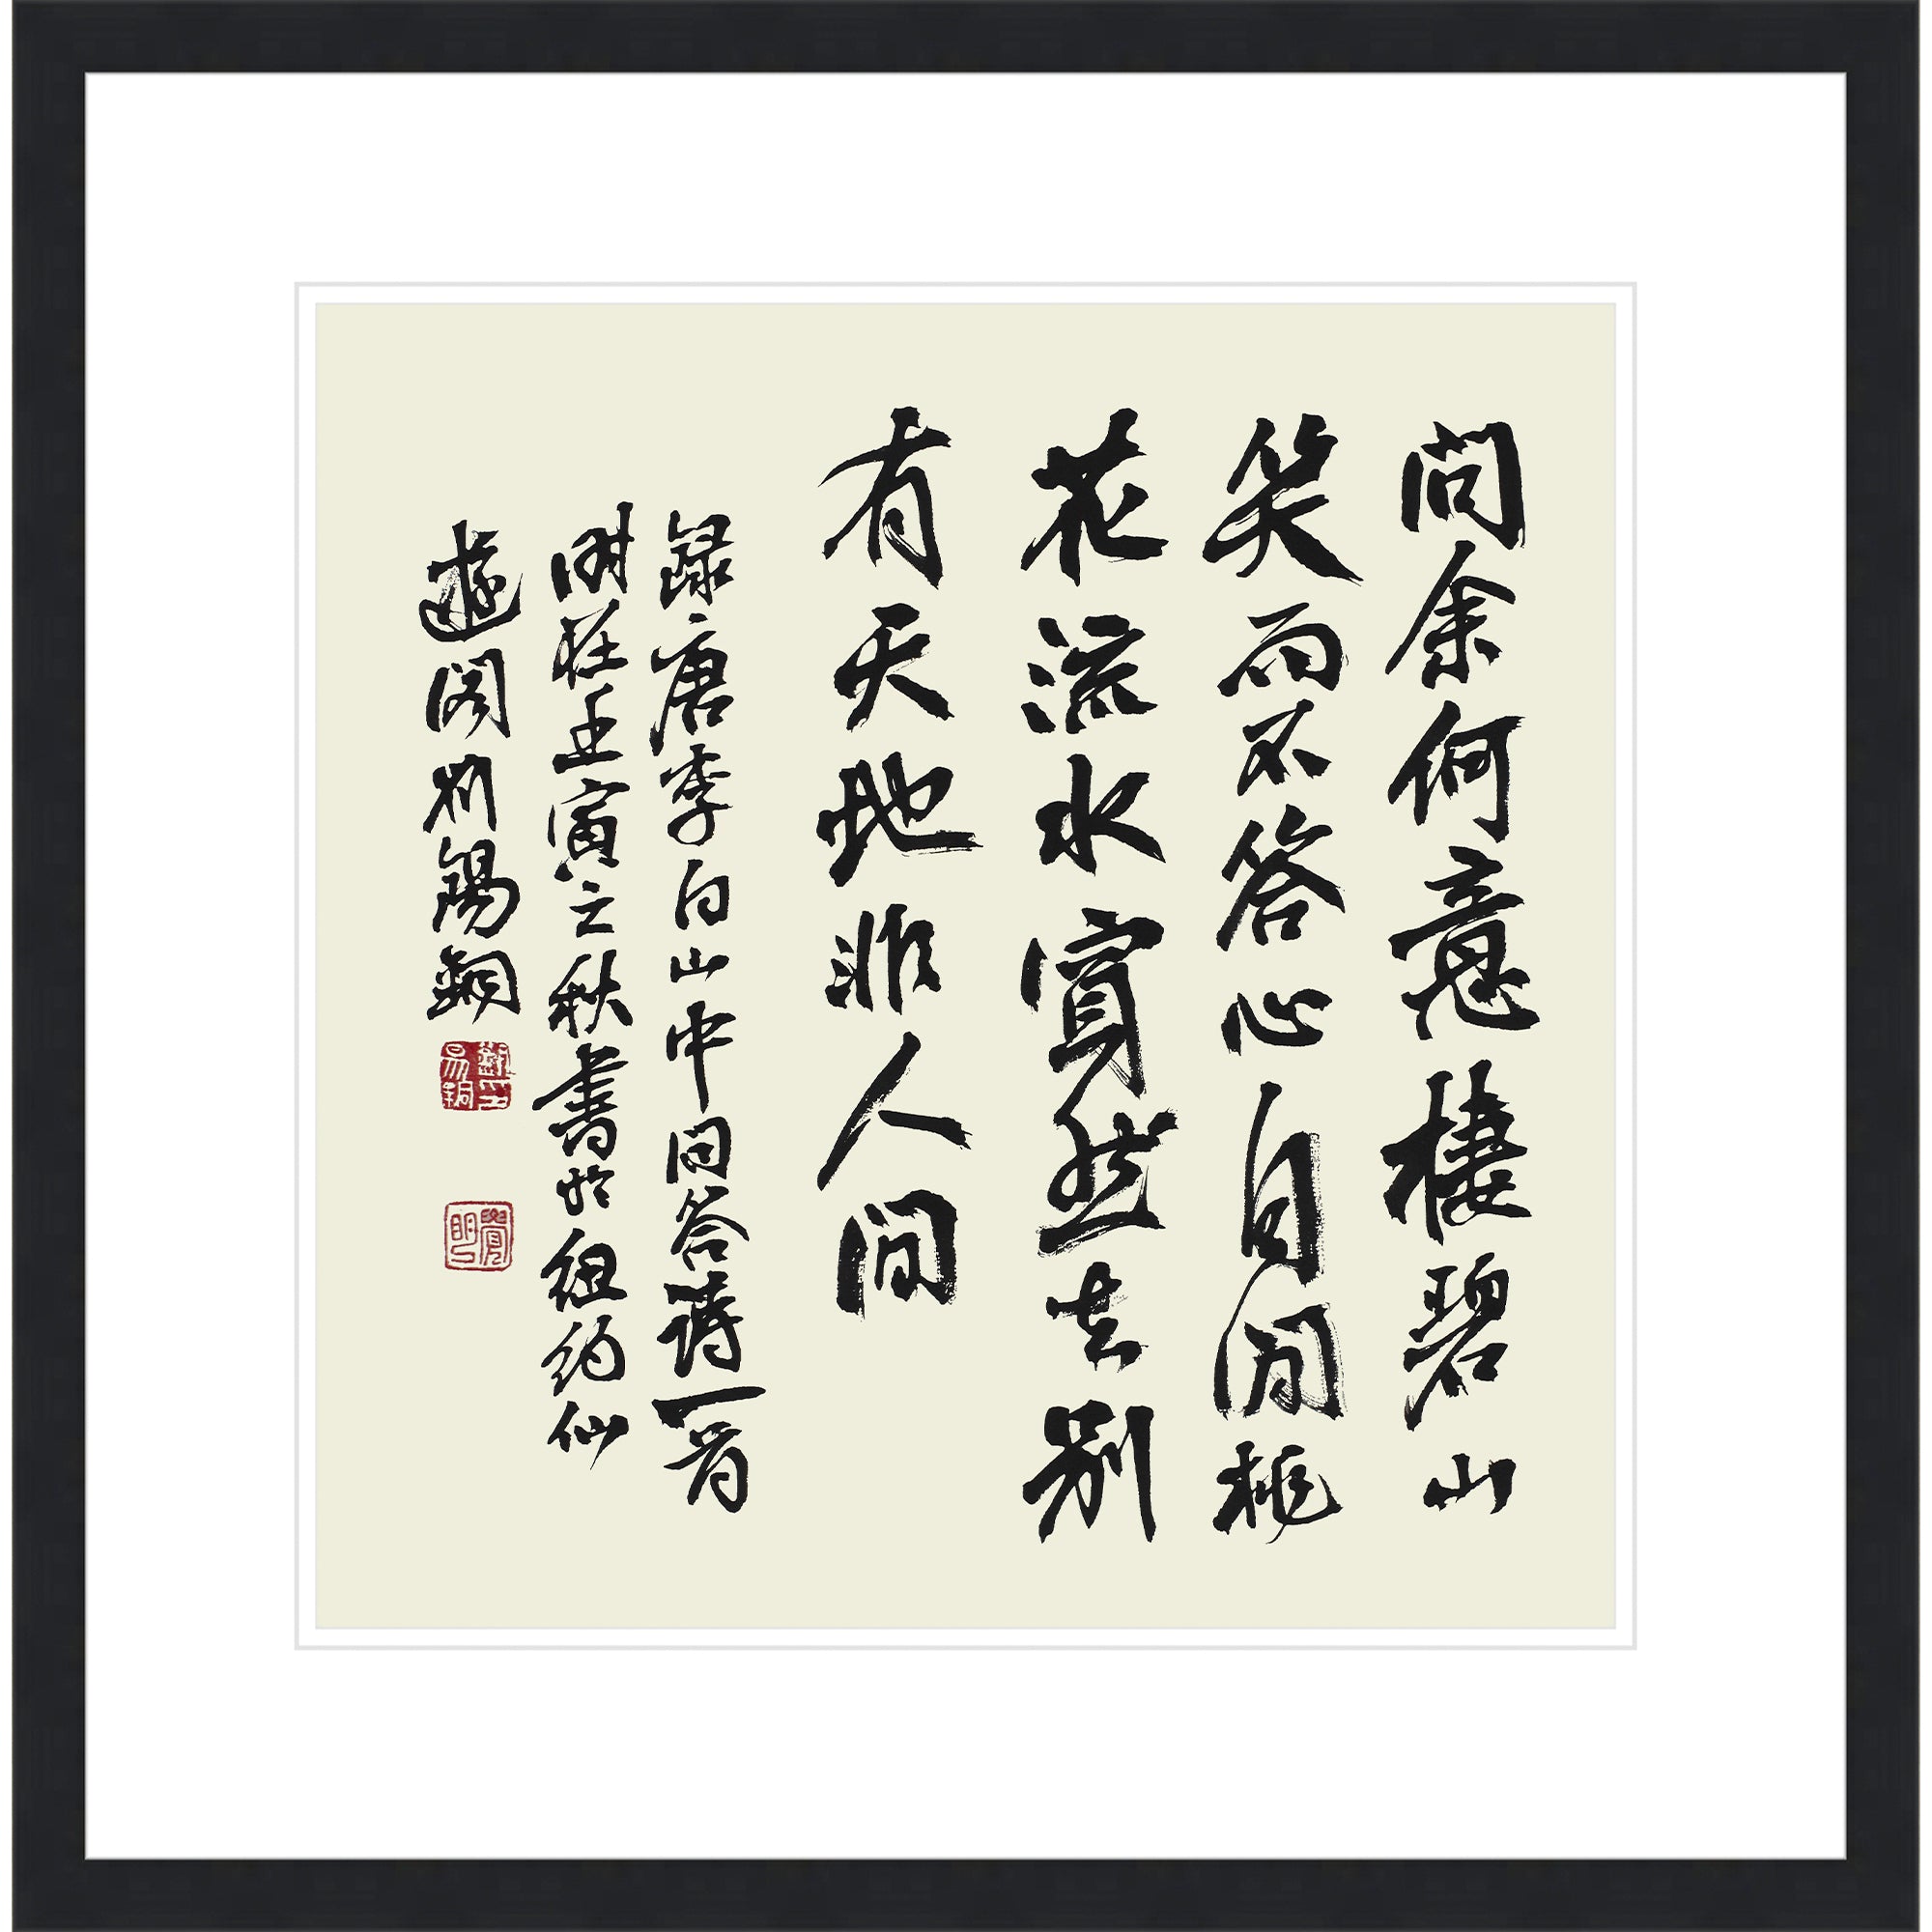 問余何意棲碧山
笑而不答心自閒桃
花流水窅然去別
有天地非人间
錄唐李白山中问答詩一首
時在壬寅之秋書於纽约仙
遊阁刘錫銅